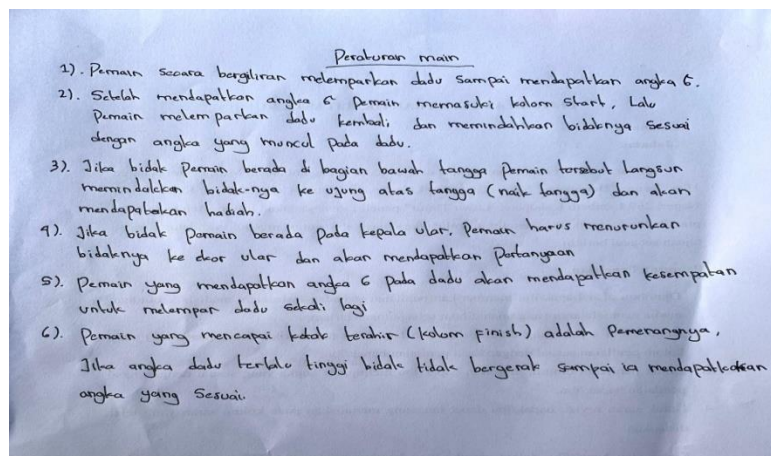 Peraturan main
1). Pemain secara bergiliran melemparkan dadu sampai mendapatkan angka 6.
2). Setelah mendapatkan angka 6 Pemain memasuki kolom Start, Lalu
Pemain melemparkan dadu kembali dan memindahkan bidaknya Sesuai
dengan angka yang muncul Pada dadu.
3). Jika bidak Pemain berada di bagian bawah tangga Pemain tersebut Langsun
memindakkan bidak-nya ke ujung atas tangga (naik tangga) dan akan
mendapatakan hadiah.
4). Jika bidak Pamain berada Pada kepala ular, Pemain harus menurunkan
bidaknya ke ekor ular dan akan mendapatkan Pertanyaan
5). Pemain yang mendapatkan angka 6 Pada dadu akan mendapatkan kesempatan
untuk melempar dadu sekali lagi
6). Pemain yang mencapai kotak terahir (kolom finish) adalah Pemenangnya,
Jika angka dadu terlalu tinggi bidak tidak bergerak sampai ia mendapatkan
angka yang Sesuai.